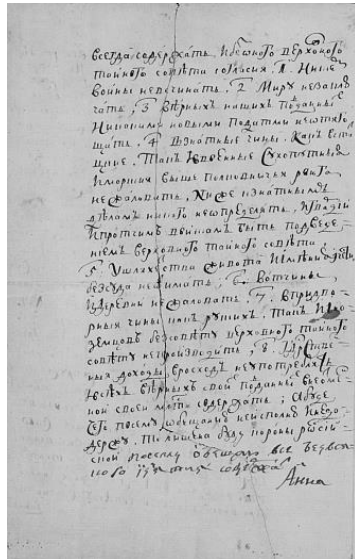 всегда содержать, и безоного верховного
тайного совета согласия. 1. Ни с кем
войны невсчинать, 2 миру незаклю
чать, 3 верных наших подданных
никакими новыми податми неотяго
щать. 4 в знатные чины, как в ста
цкие, так и в военные сухопутные
и морские выше полковничья ранга
нежаловать, ниже к знатным
делам никого неопределять, и гвардии
и протчим войскам быть под ведени
ем верховного тайного совета
5. у шляхетства живота и имения и чести
без суда неотымать, 6. вотчины
и деревни нежаловать. 7. в придво
рные чины как руских, так и ино
земцов без совету верховного тайного
совета непроизводить, 8.
доходы в росход неупотреблять
и всех верных свои подданных в неотме
нной своеи милости содержать, а буде
чего по сему обещанию неисполню и недо
держу, то лишена буду короны росиi
скои по сему обещаю все без вся
кого содержать
Анна